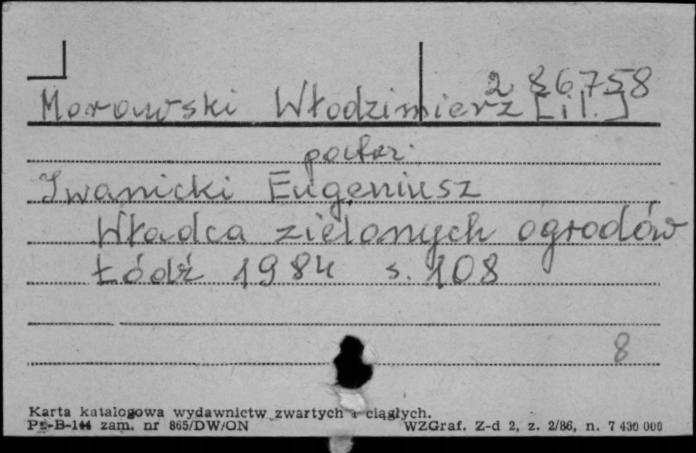 286758
Morawski Włodzimierz [il.]
patrz:
Iwanicki Eugeniusz
Władca zielonych ogrodów
Łódź 1984 s. 108
8
Karta katalogowa wydawnictw zwartych i ciągłych.
zam. nr 865/DW/ON WZGraf. Z-d 2, z. 2/86, n. 7 430 000